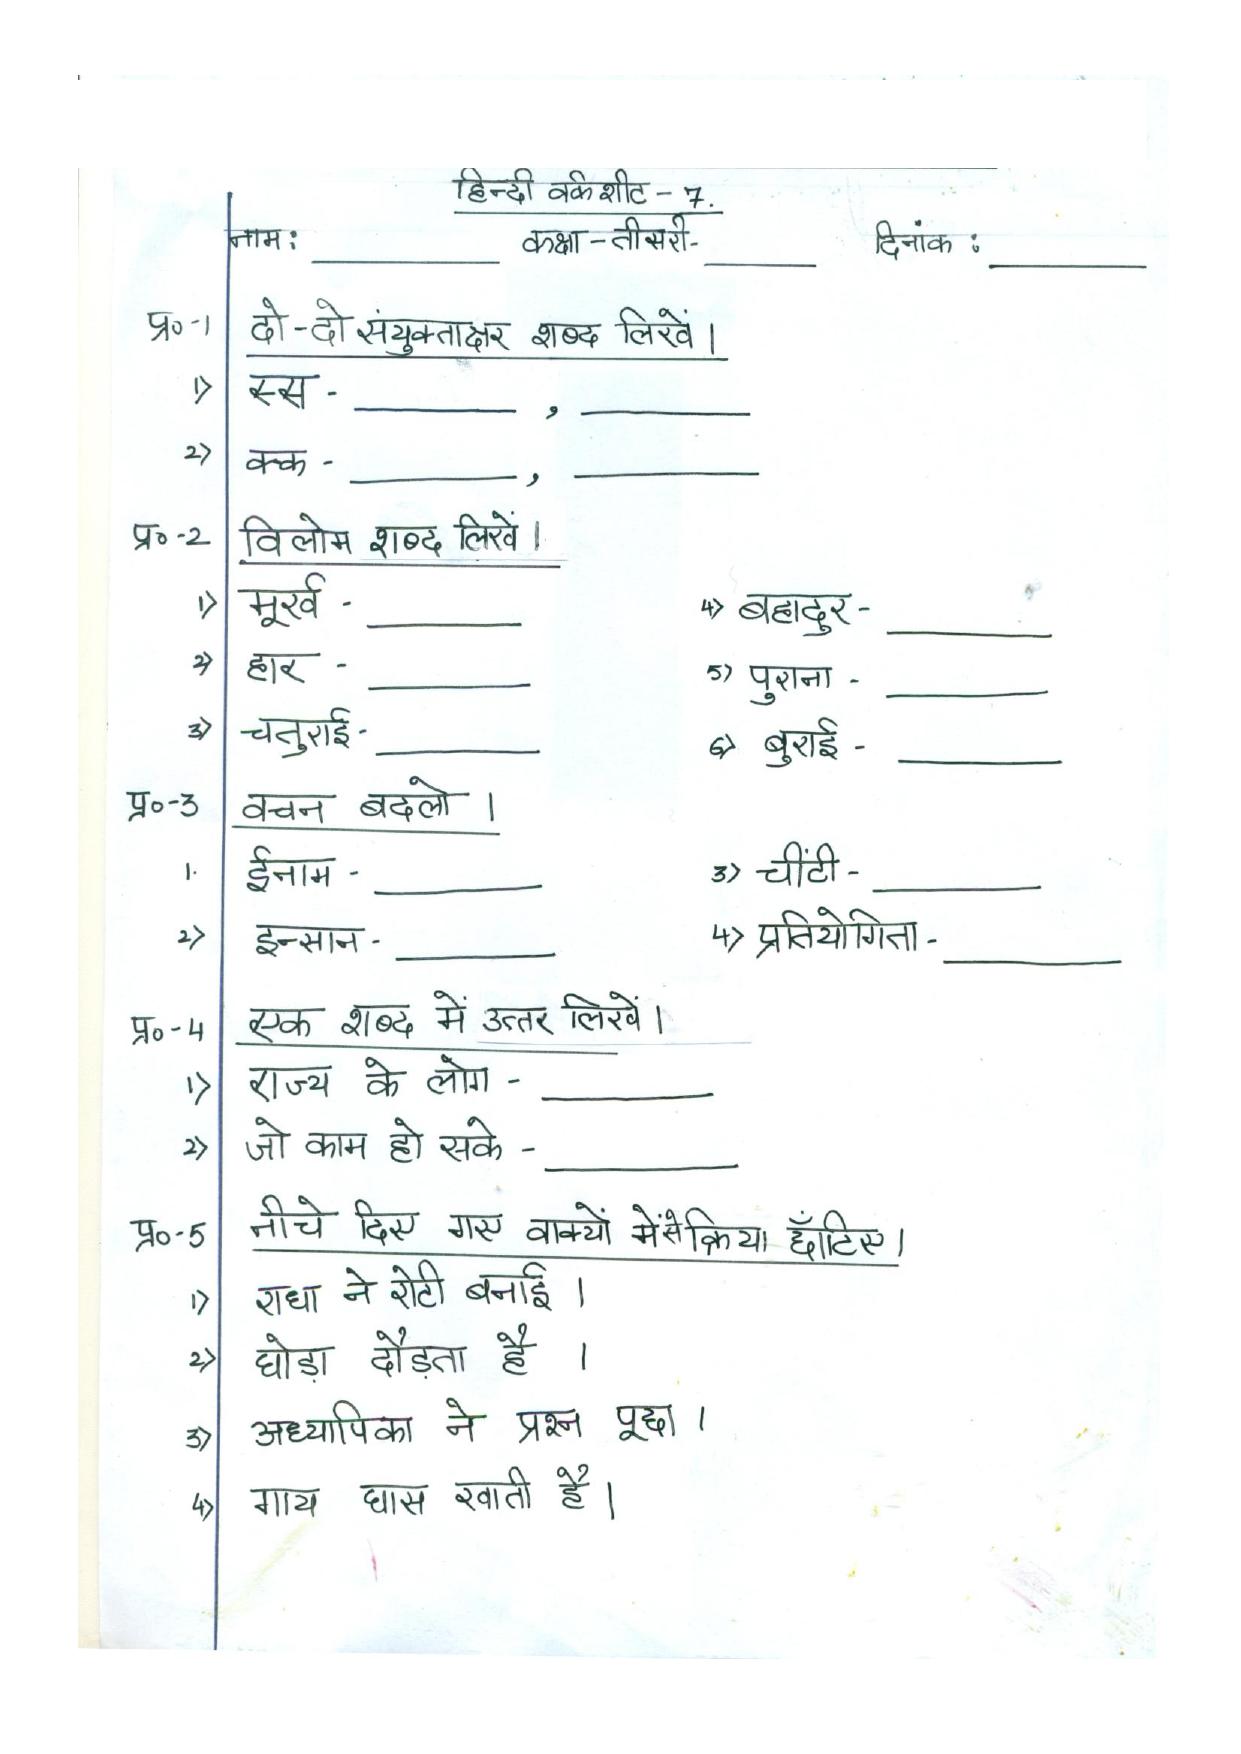 हिन्दी वर्कशीट - 7.
नाम : __________ कक्षा - तीसरी- ______ दिनांक : ________
प्र०-1 दो-दो संयुक्ताक्षर शब्द लिखें।
1) स्स - ________ , ________
2) क्क - ________ , ________
प्र०-2 विलोम शब्द लिखें।
1) मूर्ख - ________ 4) बहादुर - ________
2) हार - ________ 5) पुराना - ________
3) चतुराई - ________ 6) बुराई - ________
प्र०-3 वचन बदलो।
1. ईनाम - ________ 3) चींटी - ________
2) इन्सान - ________ 4) प्रतियोगिता - ________
प्र०-4 एक शब्द में उत्तर लिखें।
1) राज्य के लोग - ________
2) जो काम हो सके - ________
प्र०-5 नीचे दिए गए वाक्यों में से क्रिया छाँटिए।
1) राधा ने रोटी बनाई।
2) घोड़ा दौड़ता है।
3) अध्यापिका ने प्रश्न पूछा।
4) गाय घास खाती है।